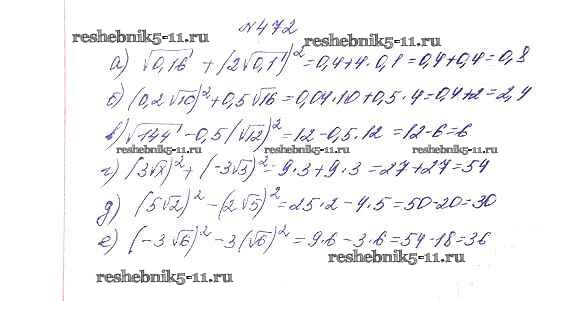 №472
reshebnik5-11.ru reshebnik5-11.ru
а) √0,16 + (2√0,1)² = 0,4+4·0,1 = 0,4+0,4 = 0,8
б) (0,2√10)² + 0,5√16 = 0,04·10+0,5·4 = 0,4+2 = 2,4
в) √144 - 0,5(√12)² = 12-0,5·12 = 12-6 = 6
reshebnik5-11.ru reshebnik5-11.ru reshebnik5-11.ru
г) (3√3)² + (-3√3)² = 9·3+9·3 = 27+27 = 54
д) (5√2)² - (2√5)² = 25·2-4·5 = 50-20 = 30
е) (-3√6)² - 3(√6)² = 9·6-3·6 = 54-18 = 36
reshebnik5-11.ru
reshebnik5-11.ru